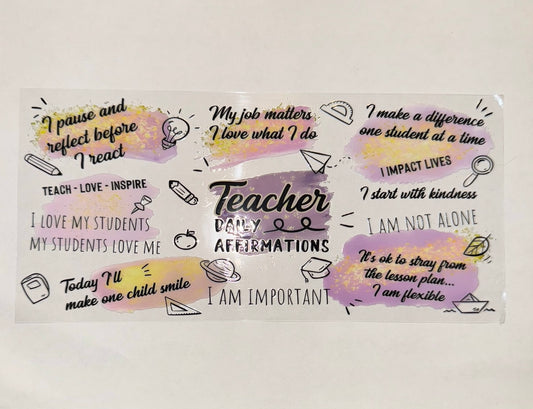 I pause and
reflect before
I react
My job matters
I love what I do
I make a difference
one student at a time
I IMPACT LIVES
TEACH - LOVE - INSPIRE
I LOVE MY STUDENTS
MY STUDENTS LOVE ME
Teacher
DAILY
AFFIRMATIONS
I start with kindness
I AM NOT ALONE
Today I'll
make one child smile
I AM IMPORTANT
It's ok to stray from
the lesson plan...
I am flexible